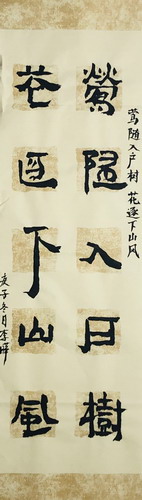 鶯隨入戶樹
花逐下山風
莺随入户树 花逐下山风
庚子冬月李